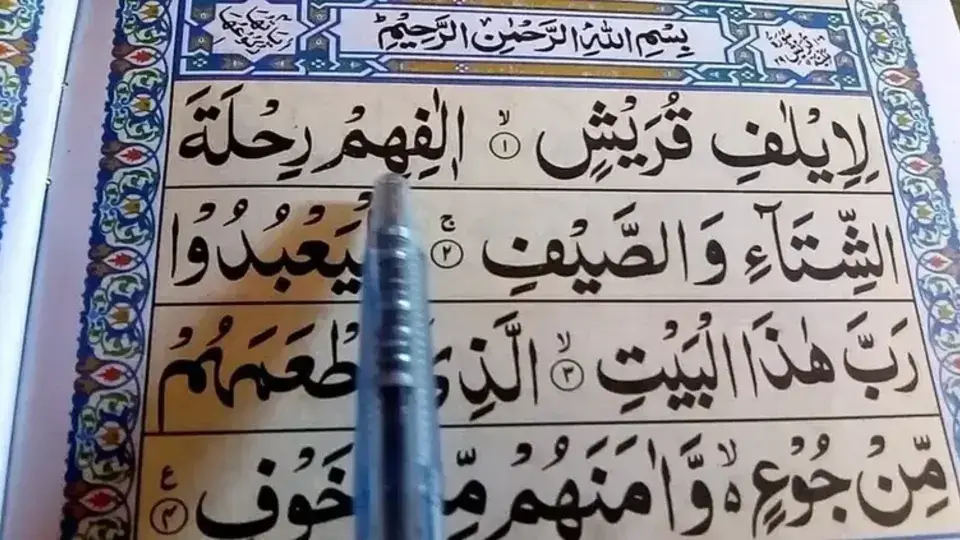 بِسْمِ اللهِ الرَّحْمٰنِ الرَّحِيْمِ
لِاِيْلٰفِ قُرَيْشٍ ۙ﴿۱﴾ اٖلٰفِهِمْ رِحْلَةَ
الشِّتَآءِ وَالصَّيْفِ ۚ﴿۲﴾ يَعْبُدُوْا
رَبَّ هٰذَا الْبَيْتِ ۙ﴿۳﴾ الَّذِيْ طْعَمَهُمْ
مِّنْ جُوْعٍ ۙ وَّاٰمَنَهُمْ خَوْفٍ ﴿۴﴾